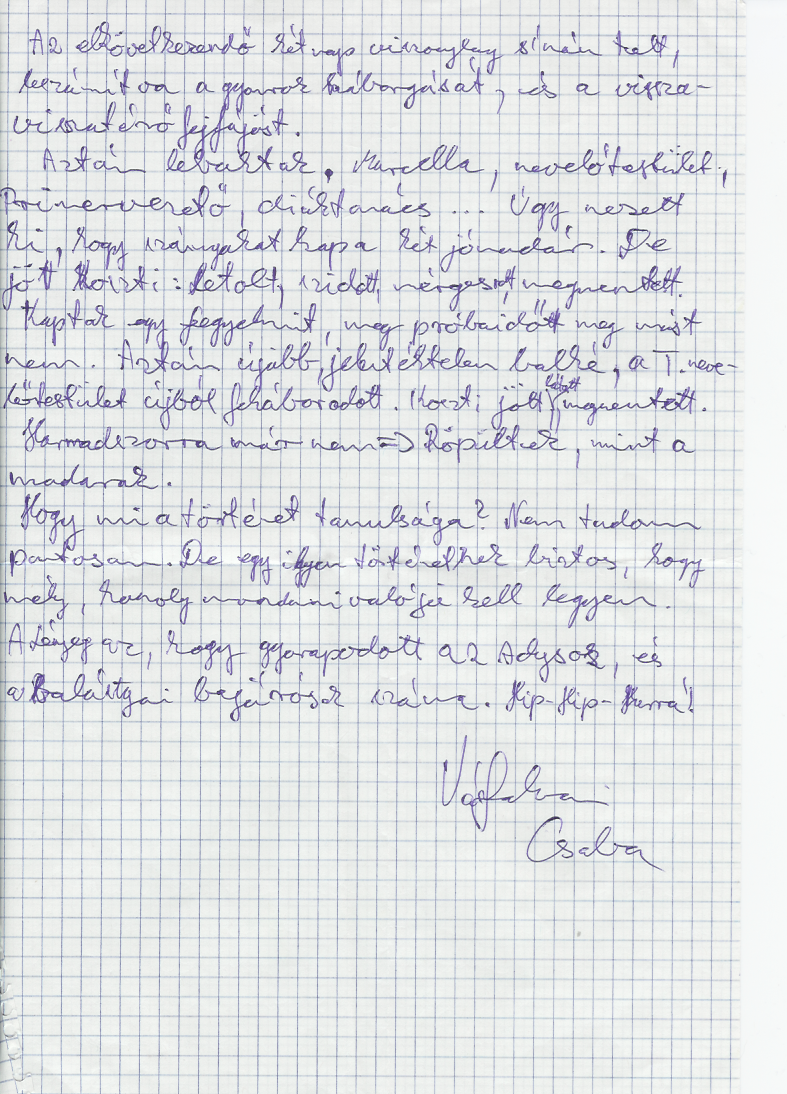 Az elkövetkezendő két nap viszonylag símán telt,
leszámítva a gyomor háborgását, és a vissza-
visszatérő fejfájást.
Aztán lebuktak. Marcella, nevelőtestület,
diáktanács ... Úgy nézett
ki, hogy szárnyakat kap a két jómadár. De
jött Koszti: letolt, szidott, mérgesn, megmentett.
Kaptak egy fegyelmit, meg próbaidőt meg mást
nem. Aztán újabb, jelentéktelen balhé, a T. neve-
lőtestület újból felháborodott. Koszti jött, látott, megmentett.
Harmadszorra már nem => Röpültek, mint a
madarak.
Hogy mi a történet tanulsága? Nem tudom
pontosan. De egy ilyen történetnek biztos, hogy
mély, komoly mondanivalója kell legyen.
A lényeg az, hogy gyarapodott az Adysok, és
a bejárósok száma. Hip-Hip-Hurrá!
Csaba